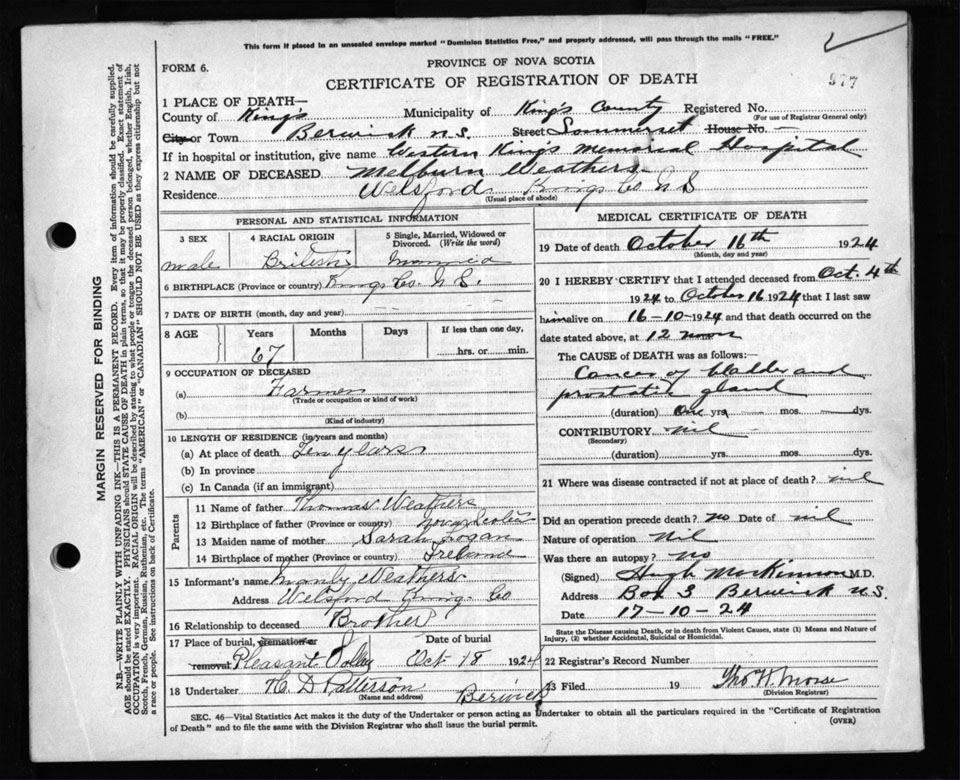 This form if placed in an unsealed envelope marked "Dominion Statistics Free," and properly addressed, will pass through the mails "FREE."
FORM 6.
PROVINCE OF NOVA SCOTIA
CERTIFICATE OF REGISTRATION OF DEATH
977
1 PLACE OF DEATH—
County of King's Municipality of King's County Registered No.
(For use of Registrar General only)
City or Town Berwick N.S. Street Sommerset House No. —
If in hospital or institution, give name Western Kings Memorial Hospital
2 NAME OF DECEASED Melburn Weathers
Residence Welsford Kings Co N S
(Usual place of abode)
PERSONAL AND STATISTICAL INFORMATION
3 SEX 4 RACIAL ORIGIN 5 Single, Married, Widowed or Divorced. (Write the word)
male British
6 BIRTHPLACE (Province or country) Kings Co. N. S.
7 DATE OF BIRTH (month, day and year)
8 AGE Years Months Days If less than one day,
67 hrs. or min.
9 OCCUPATION OF DECEASED
(a) Farmer
(Trade or occupation or kind of work)
(b)
(Kind of industry)
10 LENGTH OF RESIDENCE (in years and months)
(a) At place of death Ten years
(b) In province
(c) In Canada (if an immigrant)
Parents
11 Name of father Thomas Weathers
12 Birthplace of father (Province or country) Nova Scotia
13 Maiden name of mother Sarah Logan
14 Birthplace of mother (Province or country) Ireland
15 Informant's name Manly Weathers
Address Welsford Kings Co
16 Relationship to deceased Brother
17 Place of burial, cremation or removal Pleasant Valley Date of burial Oct 18 1924
18 Undertaker H. D Patterson Berwick
(Name and address)
MEDICAL CERTIFICATE OF DEATH
19 Date of death October 16th 1924
(Month, day and year)
20 I HEREBY CERTIFY that I attended deceased from Oct. 4th
1924 to October 16 1924 that I last saw
him alive on 16-10-1924 and that death occurred on the
date stated above, at 12 noon
The CAUSE of DEATH was as follows:—
Cancer of bladder and
prostatic gland
(duration) One yrs. mos. dys.
CONTRIBUTORY nil
(Secondary)
(duration) yrs. mos. dys.
21 Where was disease contracted if not at place of death? nil
Did an operation precede death? no Date of nil
Nature of operation Nil
Was there an autopsy? no
(Signed) Hugh MacKinnon M.D.
Address Box 3 Berwick N.S.
Date 17-10-24
State the Disease causing Death, or in death from Violent Causes, state (1) Means and Nature of Injury, (2) whether Accidental, Suicidal or Homicidal.
22 Registrar's Record Number
23 Filed 19 Thos H. Morse
(Division Registrar)
SEC. 46—Vital Statistics Act makes it the duty of the Undertaker or person acting as Undertaker to obtain all the particulars required in the "Certificate of Registration
of Death" and to file the same with the Division Registrar who shall issue the burial permit.
(OVER)
MARGIN RESERVED FOR BINDING
N.B.—WRITE PLAINLY WITH UNFADING INK—THIS IS A PERMANENT RECORD. Every item of information should be carefully supplied.
AGE should be stated EXACTLY. PHYSICIANS should STATE CAUSE OF DEATH in plain terms, so that it may be properly classified. Exact statement of
OCCUPATION is very important. RACIAL ORIGIN will be described by stating to what people or tongue the deceased person belonged, whether English, Irish,
Scotch, French, German, Russian, Ruthenian, etc. The terms "AMERICAN" or "CANADIAN" SHOULD NOT BE USED as they express citizenship but not
a race or people. See instructions on back of Certificate.